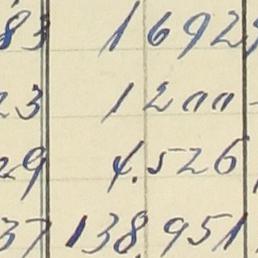 83 1692
23 1200
29 4.526
37 138.951